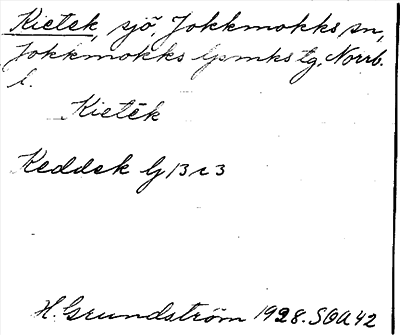 Kietek, sjö, Jokkmokks sn,
Jokkmokks lpmks tg. Norrb.
l.
Kietēk
Keddek G 13 c 3
H. Grundström 1928. SOA 42